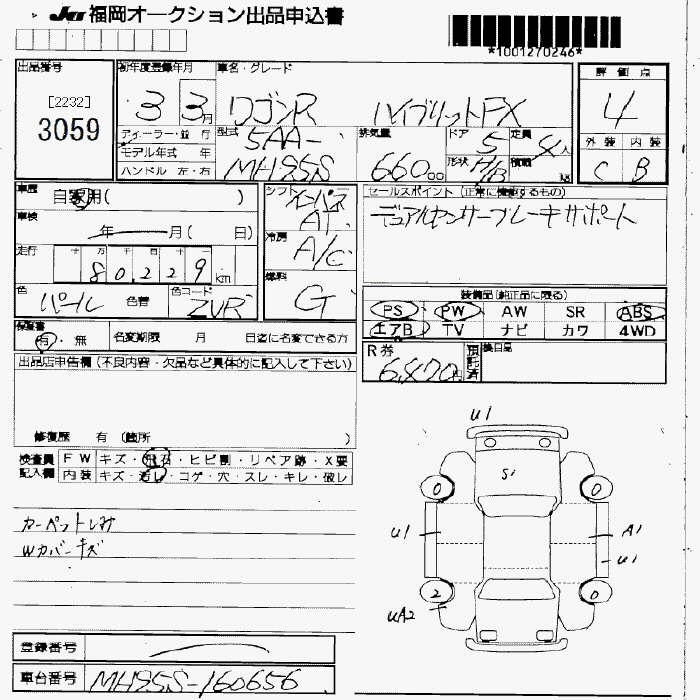 JU 福岡オークション出品申込書
*1001270246*
出品番号
[2232]
3059
初年度登録年月
3 3月
車名・グレード
ワゴンR ハイブリットFX
評価点
4
外装 内装
C B
ディーラー・並行
モデル年式 年
ハンドル 左・右
型式
5AA-
MH95S
排気量
660.00
ドア 5
形状 H/B
定員 4人
積載 kg
車歴 自家用( )
車検 年 月 ( 日)
走行 十万千百十一
80,229 km
色 パール 色替
色コード ZVR
シフト
インパネ
AT
冷房
A/C
燃料
G
セールスポイント (正常に機能するもの)
デュアルセンサーブレーキサポート
装備品(純正品に限る)
PS PW AW SR ABS
エアB TV ナビ カワ 4WD
保証書
有・無 名変期限 月 日迄に名変できる方
R券 6,470円 預託済
出品店申告欄(不良内容・欠品など具体的に記入して下さい)
修復歴 有 (箇所 )
検査員記入欄
FW キズ・飛石・ヒビ割・リペア跡・X要
内装 キズ・汚レ・コゲ・穴・スレ・キレ・破レ
カーペットしみ
Wカバーキズ
U1
S1
0 0
U1 A1
U1
2 0
UA2
登録番号
車台番号 MH95S-160656